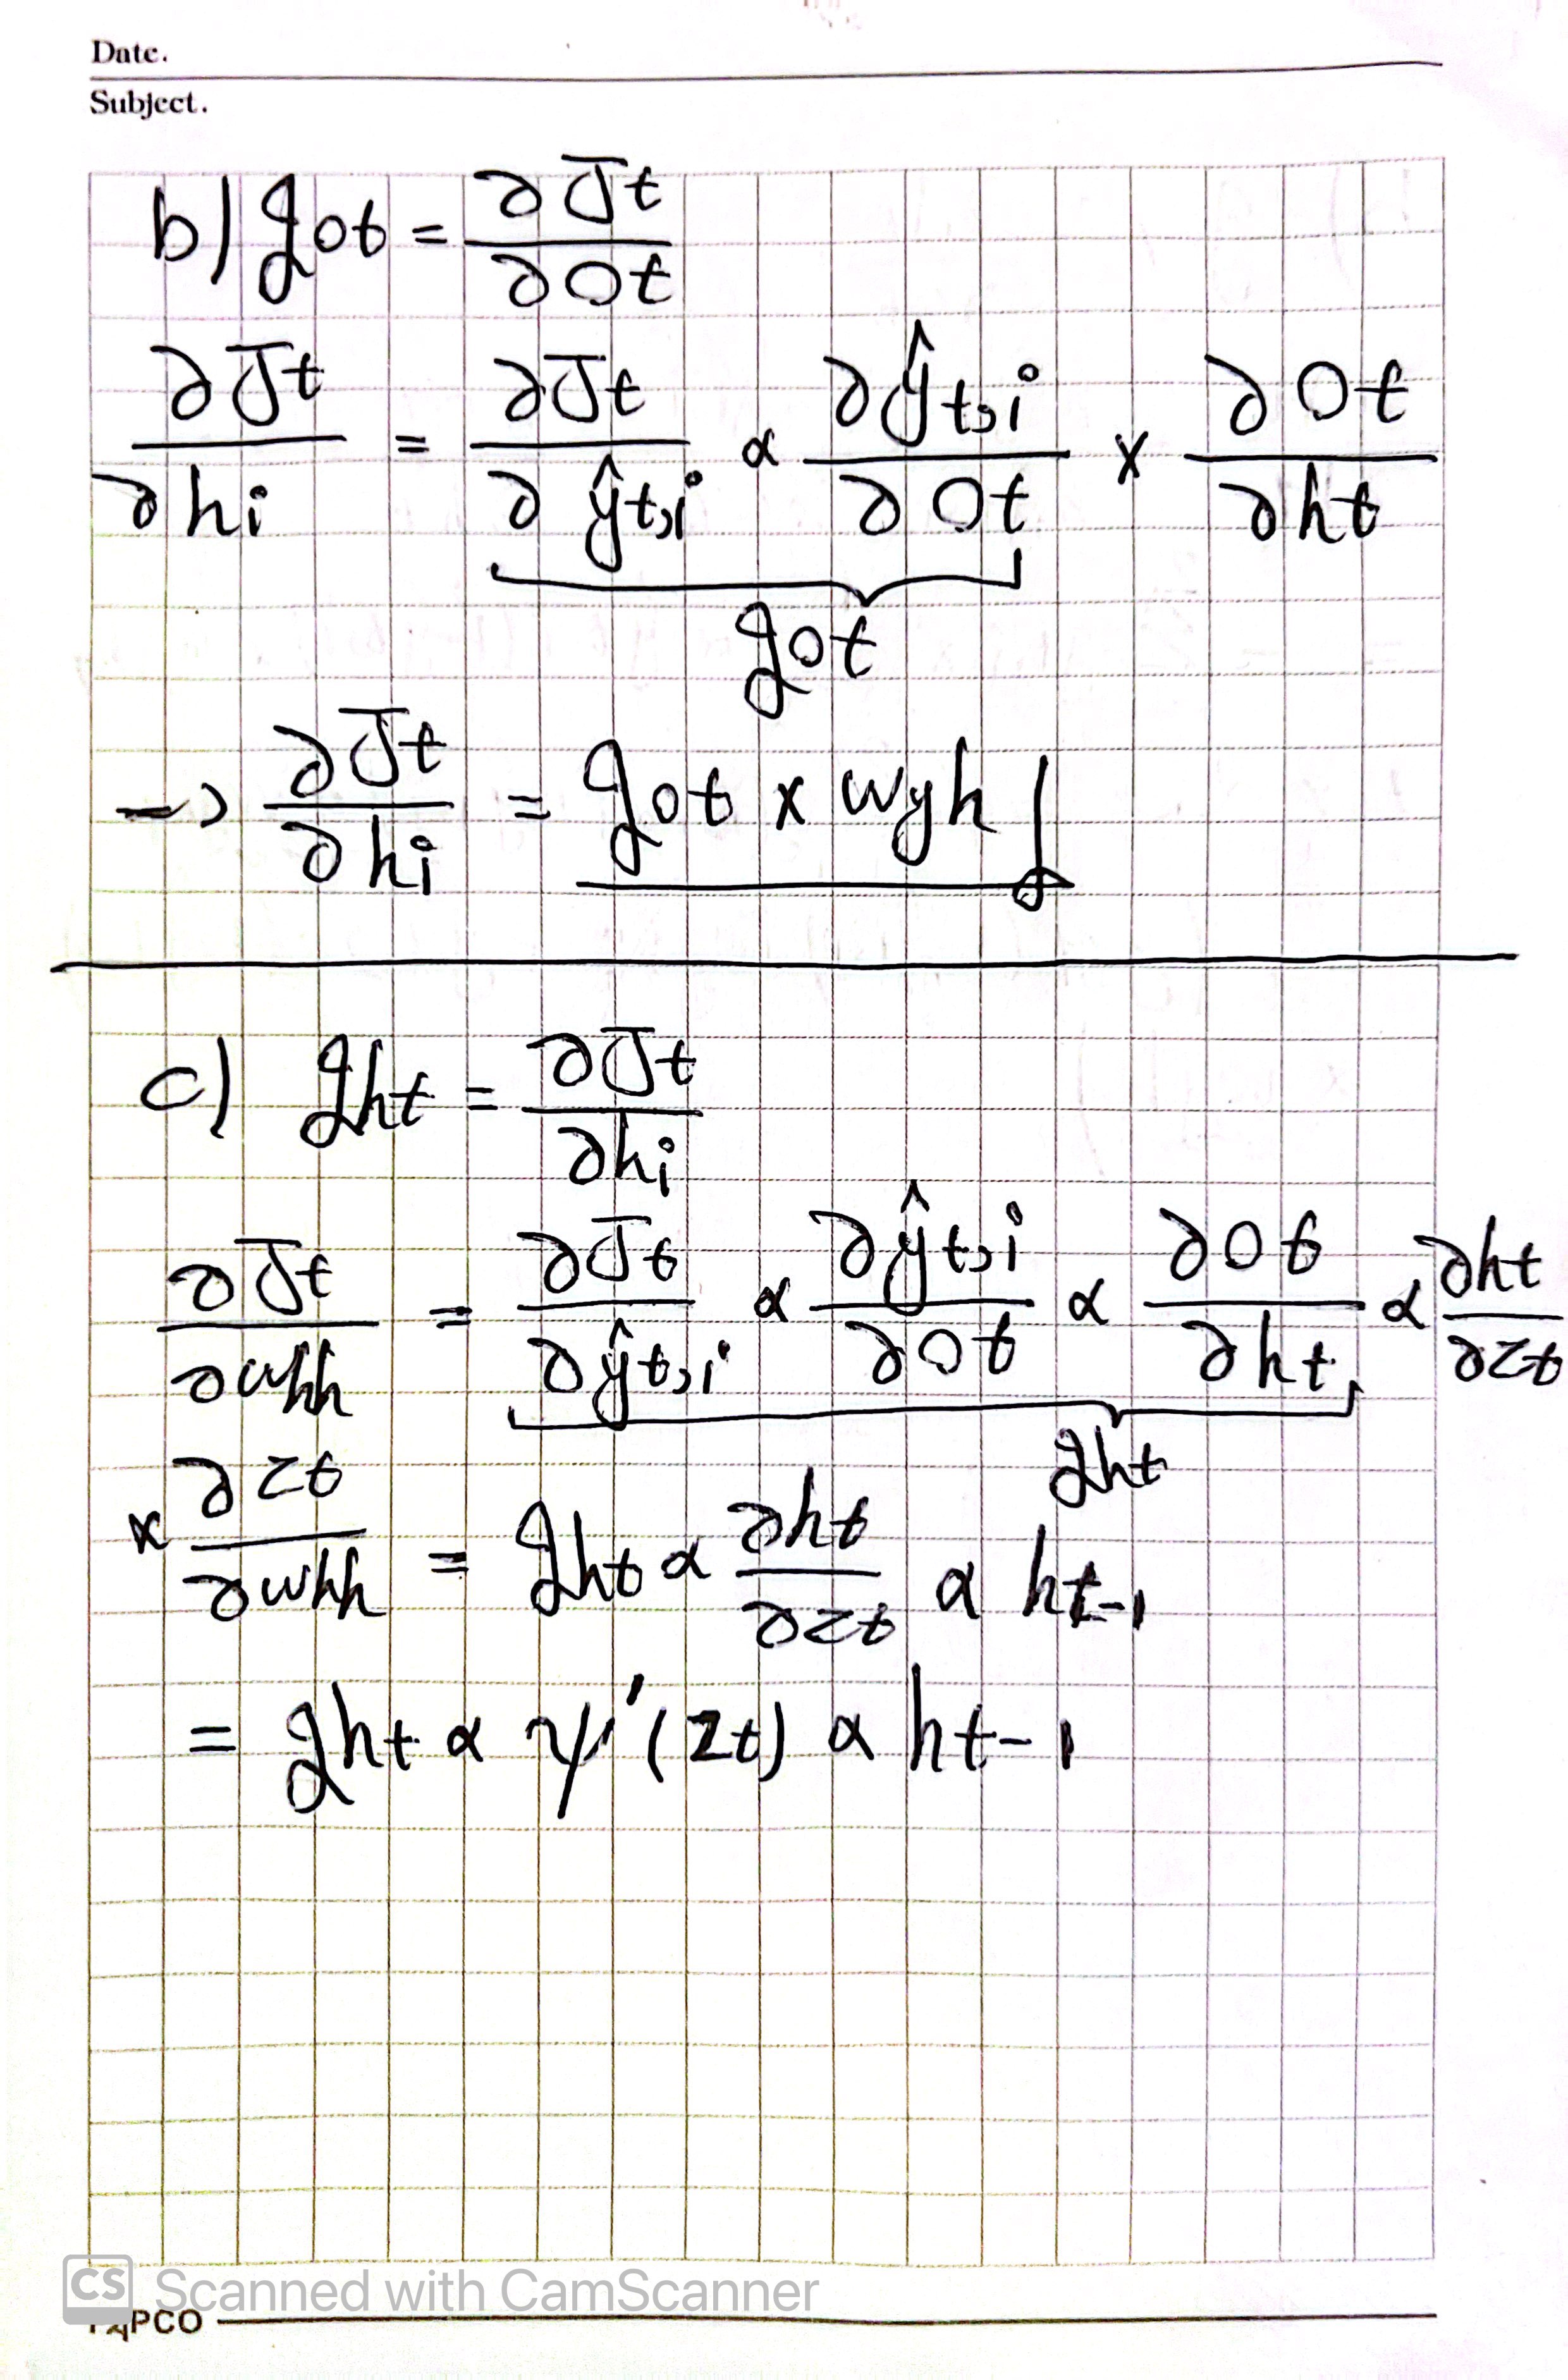 Date.
Subject.
b) got = ∂Jt / ∂Ot
∂Jt / ∂hi = ∂Jt / ∂ŷt,i × ∂ŷt,i / ∂Ot × ∂Ot / ∂ht
got
=> ∂Jt / ∂hi = got × wyh
c) ght = ∂Jt / ∂hi
∂Jt / ∂whh = ∂Jt / ∂ŷt,i × ∂ŷt,i / ∂Ot × ∂Ot / ∂ht × ∂ht / ∂zt
ght
× ∂zt / ∂whh = ght × ∂ht / ∂zt × ht-1
= ght × ψ'(zt) × ht-1
CS Scanned with CamScanner
PCO